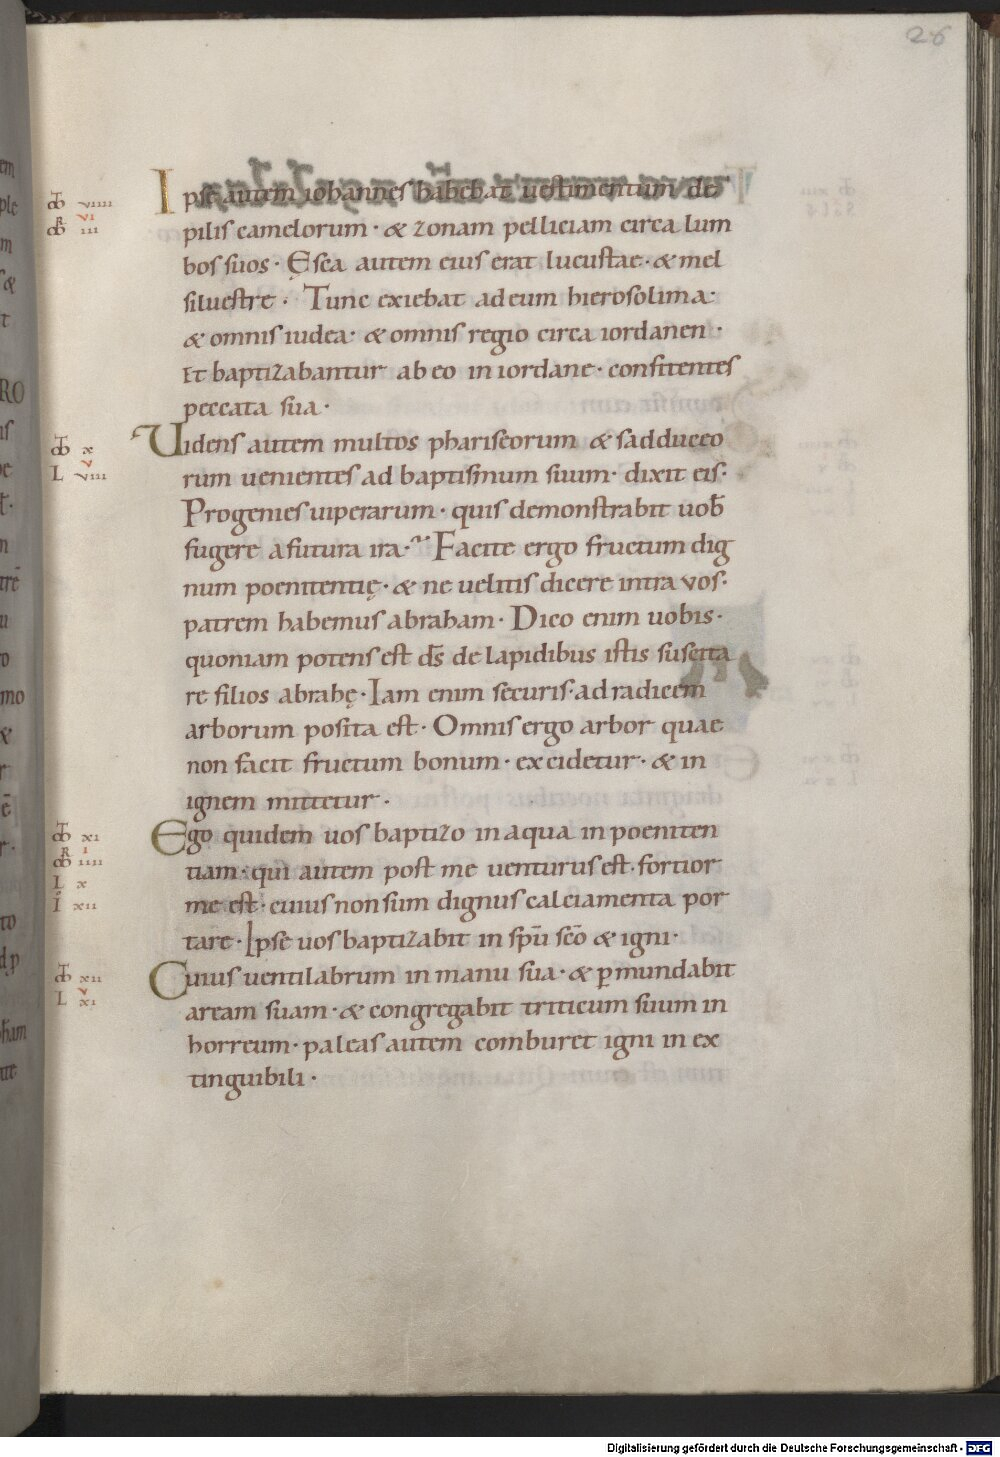 26
Ipse autem iohannes habebat uestimentum de
pilis camelorum · & zonam pelliciam circa lum
bos suos · Esca autem eius erat lucustae · & mel
siluestre · Tunc exiebat ad eum hierosolima·
& omnis iudea· & omnis regio circa iordanen ·
Et baptizabantur ab eo in iordane · confitentes
peccata sua ·
Uidens autem multos phariseorum & sadduceo
rum uenientes ad baptismum suum · dixit eis·
Progenies uiperarum · quis demonstrabit uob̄
fugere a futura ira · Facite ergo fructum dig
num poenitentię · & ne uelitis dicere intra vos·
patrem habemus abraham · Dico enim uobis ·
quoniam potens est d̄s de lapidibus istis suscita
re filios abrahę · Iam enim securis · ad radicem
arborum posita est · Omnis ergo arbor quae
non facit fructum bonum · excidetur · & in
ignem mittetur ·
Ego quidem uos baptizo in aqua in poeniten
tiam · qui autem post me uenturus est · fortior
me est · cuius non sum dignus calciamenta por
tare · Ipse uos baptizabit in spū scō & igni ·
Cuius uentilabrum in manu sua · & ꝑmundabit
aream suam · & congregabit triticum suum in
horreum · paleas autem comburet igni in ex
tinguibili ·
Digitalisierung gefördert durch die Deutsche Forschungsgemeinschaft - DFG